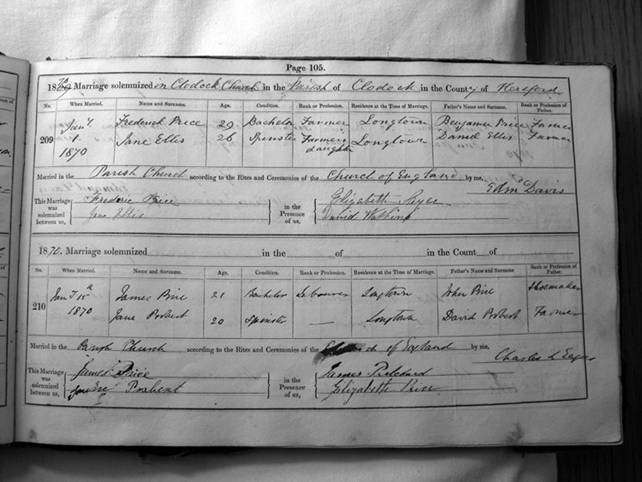 Page 105.
1870 Marriage solemnized in Clodock Church in the Parish of Clodock in the County of Hereford
No. When Married. Name and Surname. Age. Condition. Rank or Profession. Residence at the Time of Marriage. Father's Name and Surname. Rank or Profession of Father.
209 Jany 1 1870 Frederick Price 29 Bachelor Farmer Longtown Benjamin Price Farmer
Jane Ellis 26 Spinster Farmer's daughter Longtown Daniel Ellis Farmer
Married in the Parish Church according to the Rites and Ceremonies of the Church of England by me, Edmd Davis
This Marriage was solemnized between us, Frederic Price Jane Ellis in the Presence of us, Elizabeth David Watkins
1870. Marriage solemnized in the of in the County of
No. When Married. Name and Surname. Age. Condition. Rank or Profession. Residence at the Time of Marriage. Father's Name and Surname Rank or Profession of Father.
210 Jany 15th 1870 James Price 21 Bachelor Labourer Longtown John Price Shoemaker
Jane Probert 20 Spinster — Longtown David Probert Farmer
Married in the Parish Church according to the Rites and Ceremonies of the Church of England by me, Charles L
This Marriage was solemnized between us, James Price Jane Probert in the Presence of us, James Pritchard Elizabeth Price